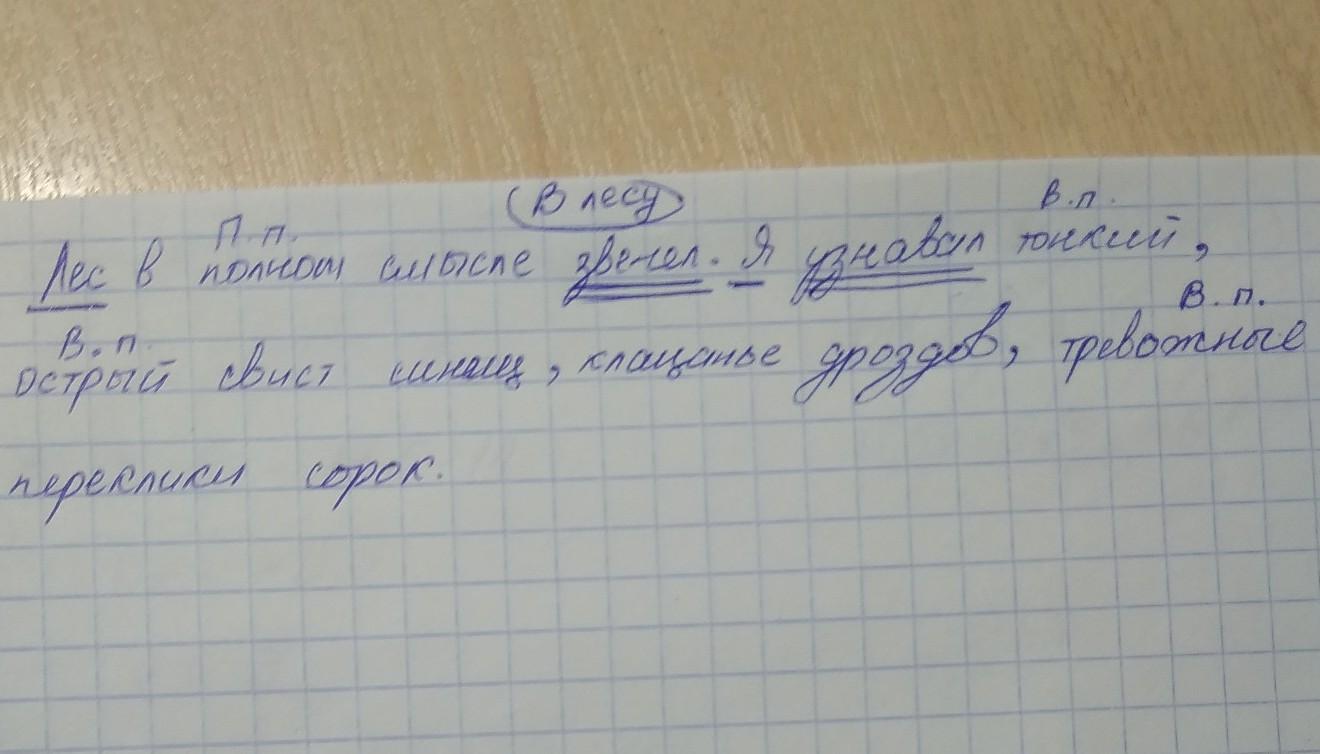 В лесу
П.п. В.п.
Лес в полном смысле звенел. Я узнавал тонкий,
В.п. В.п.
острый свист синиц, клацанье дроздов, тревожные
переклики сорок.